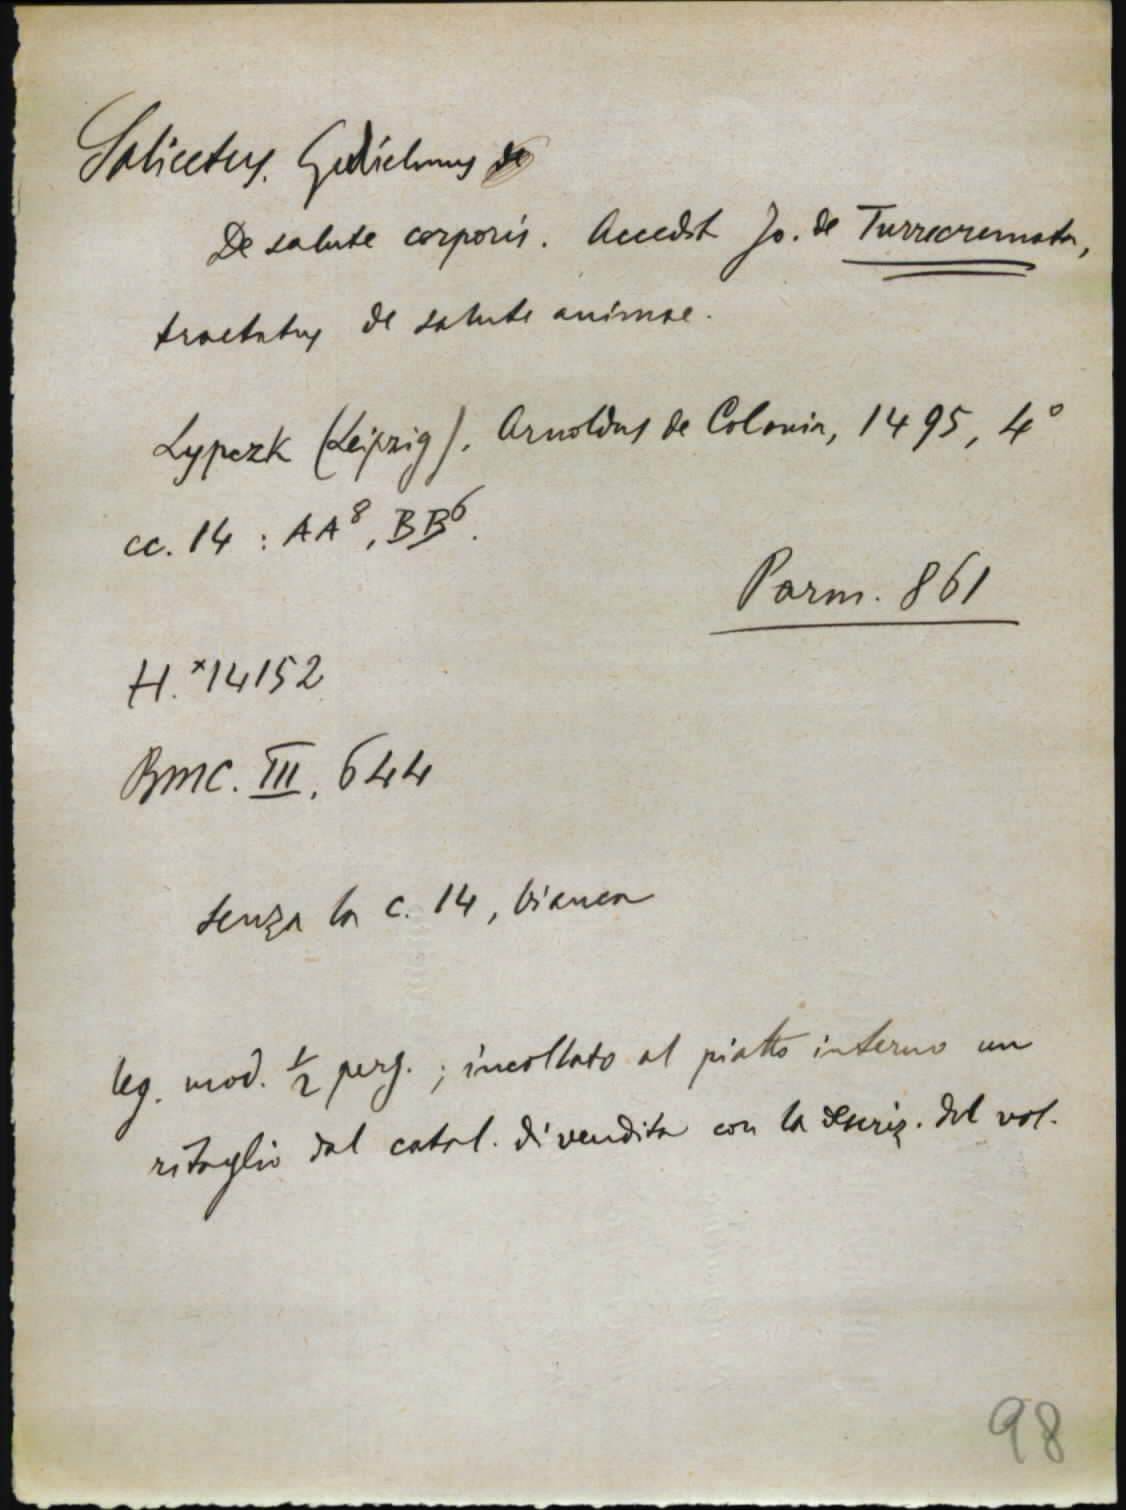 Salicetus, Gulielmus de
De salute corporis. Accedit Jo. de Turrecremata,
tractatus de salute animae.
Lypczk (Leipzig), Arnoldus de Colonia, 1495, 4°
cc. 14 : AA⁸, BB⁶.
Parm. 861
H. *14152
BMC. III, 644
senza la c. 14, bianca
leg. mod. ½ perg. ; incollato al piatto interno un
ritaglio dal catal. di vendita con la descriz. del vol.
98